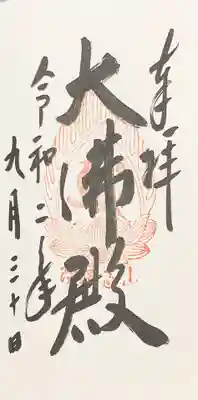 奉拝
大佛殿
令和二年
九月三十日